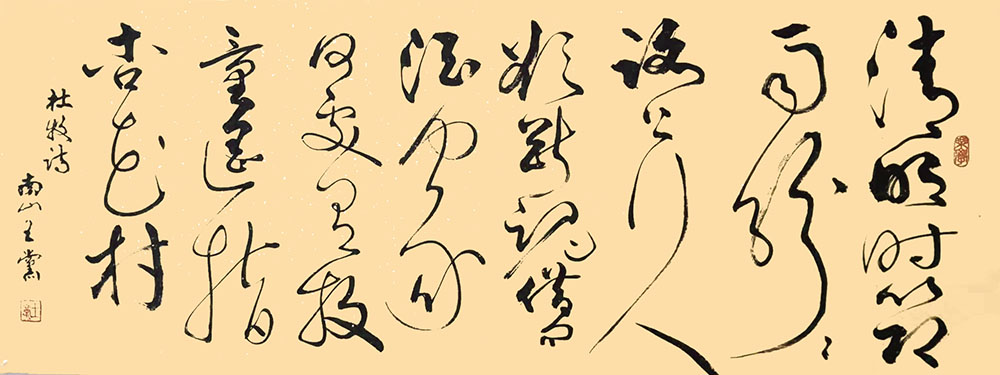 清明时节
雨纷々
路上行人
欲断魂借问
酒家
何处有牧
童遥指
杏花村
杜牧诗
南山王